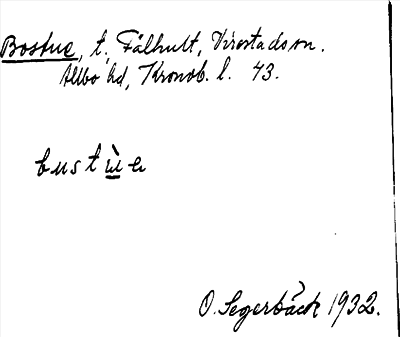 Bostue, t. Fälhult, Virestads sn.
Allbo hd, Kronob. l. 43.
bustùe
O. Segerbäck 1932.